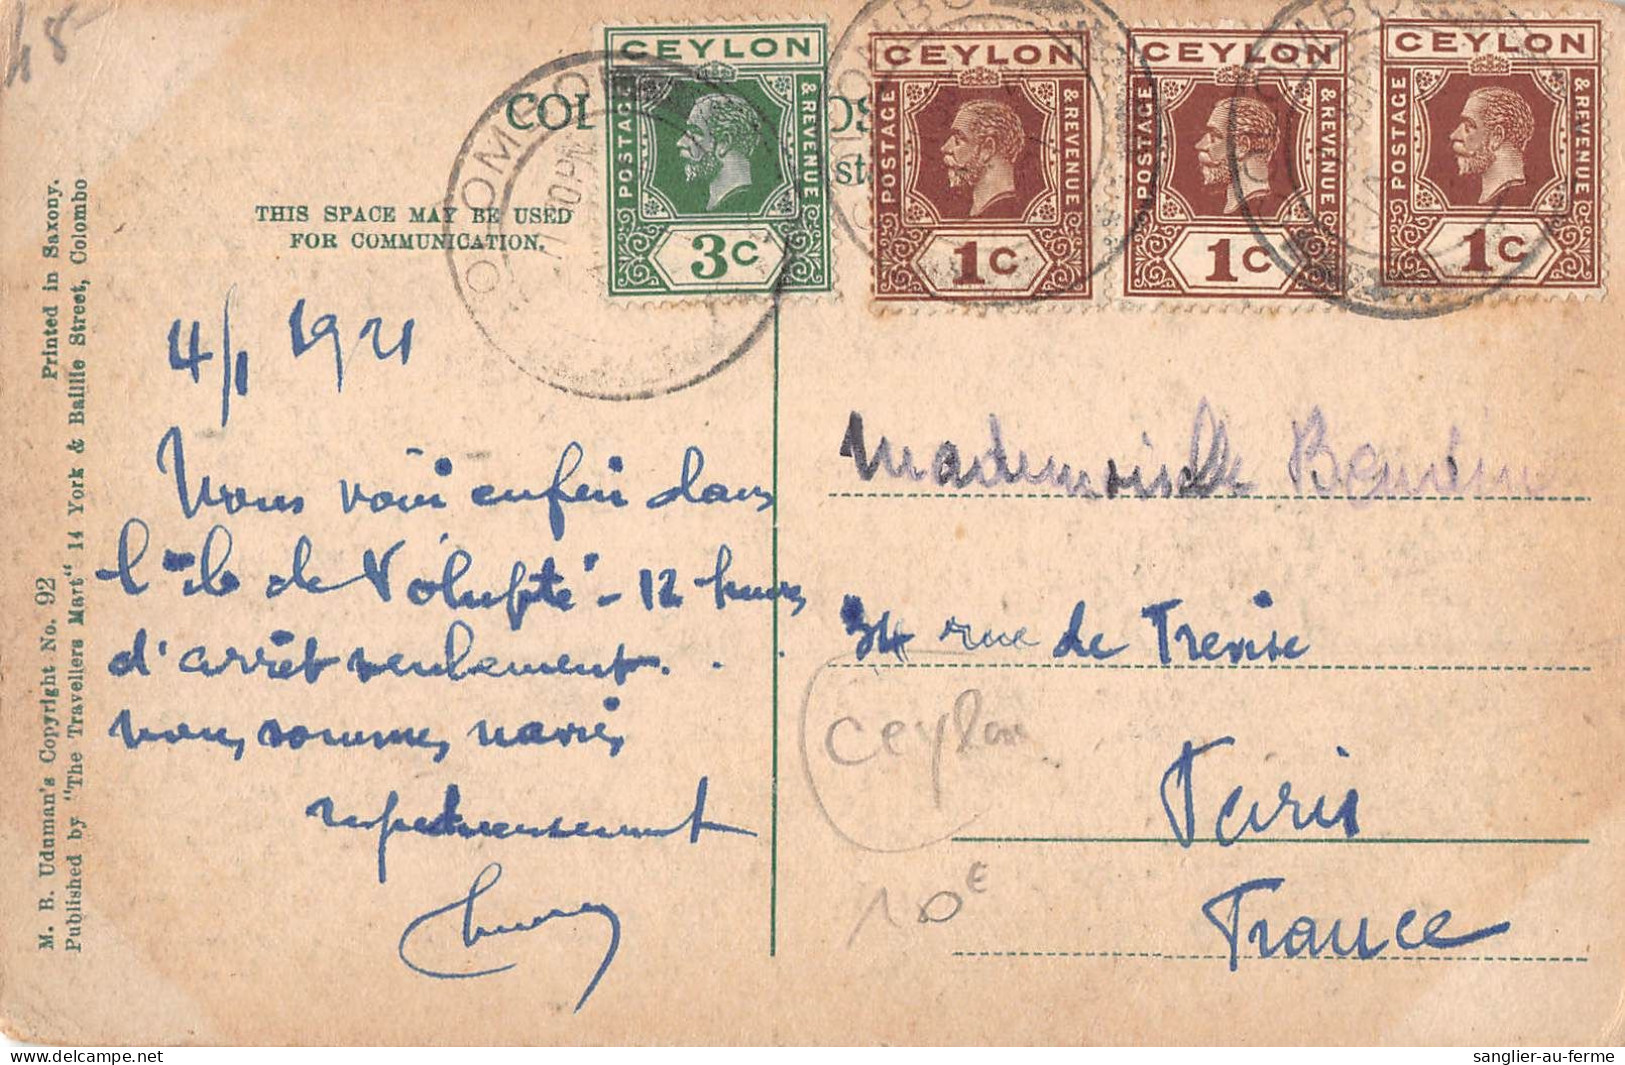 48-
CEYLON
POSTAGE
& REVENUE
3C
CEYLON
POSTAGE
& REVENUE
1C
CEYLON
POSTAGE
& REVENUE
1C
CEYLON
POSTAGE
& REVENUE
1C
COLOMBO
THIS SPACE MAY BE USED
FOR COMMUNICATION.
M. B. Uduman's Copyright No. 92 Printed in Saxony.
Published by "The Travellers Mart" 14 York & Baillie Street, Colombo
4/1 1921
Nous voici enfin dans
l'île de Volupté - 12 heures
d'arrêt seulement . . .
nous sommes navrés
respectueusement
Mademoiselle
34 rue de Trevise
Paris
France
Ceylon
10€
sanglier-au-ferme